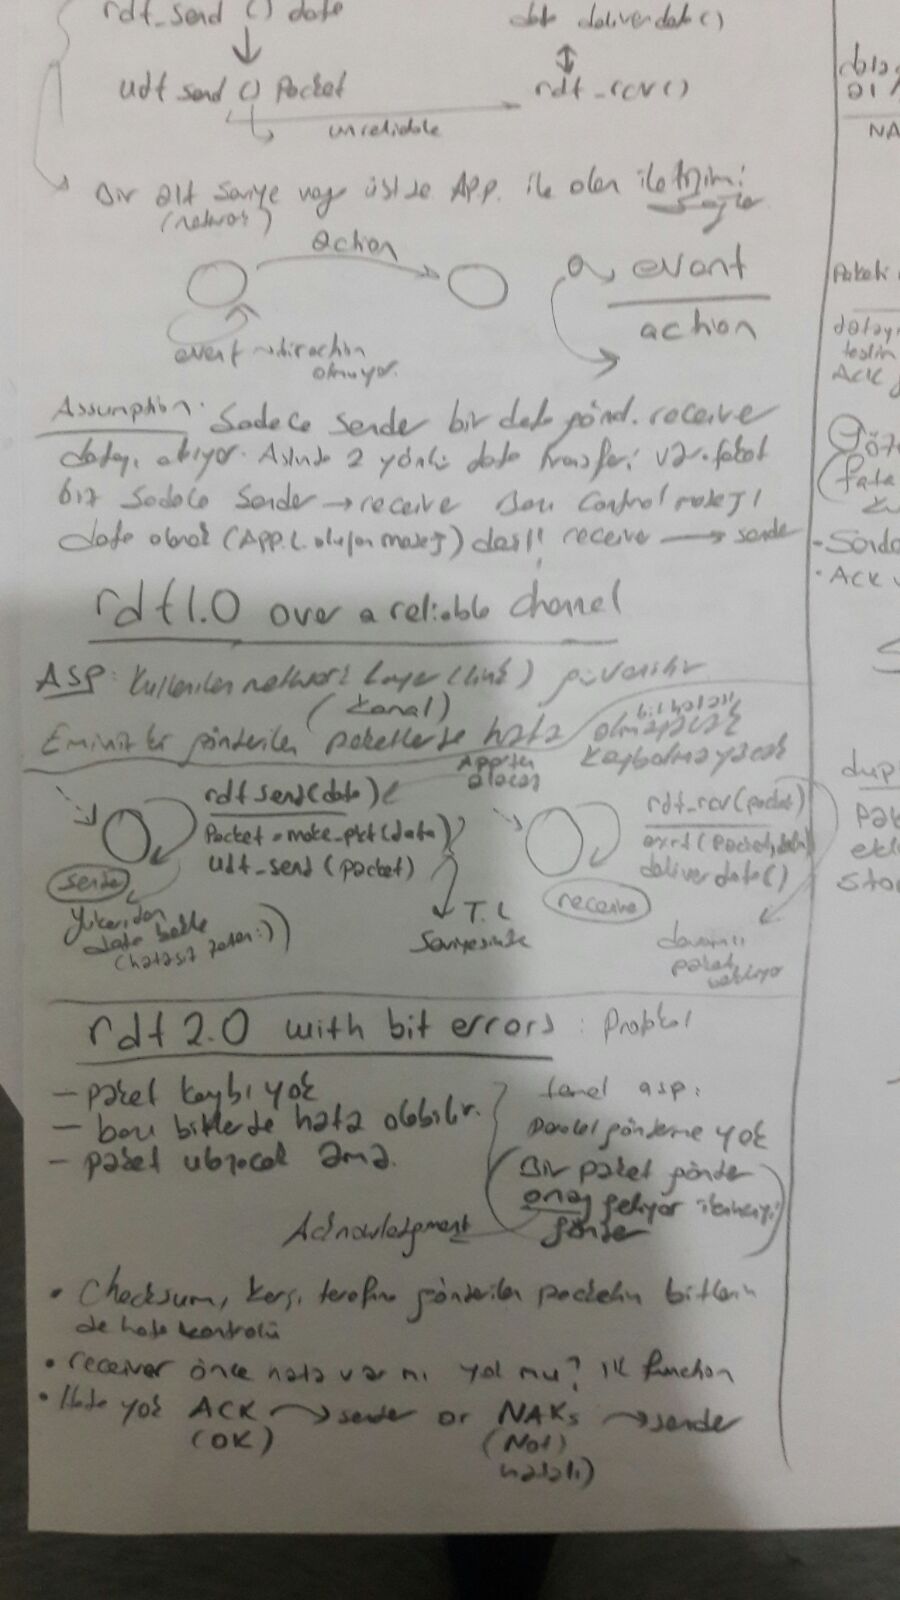 rdt_send () data
deliver data ()
udt_send () Packet
rdt_rcv ()
unreliable
Bir alt seviye veya üstde APP. ile olan iletişimi
(network)
sağlar
action
event
action
event
olmuyor.
Assumption: Sadece sender bir data gönd. receive
datayı alıyor. Aslında 2 yönlü data transferi var. fakat
biz sadece sender → receive bazı control mesajı
data olarak (APP.L. oluşan mesaj) değil! receive → sender
rdt1.0 over a reliable channel
ASP: Kullanılan network layer (link) güvenilir
(kanal)
Eminiz ki gönderilen paketlerde hata
bit hatası
olmayacak
kaybolmayacak
App'ten
alacaz
rdt_send(data)
Packet = make_pkt(data)
udt_send (packet)
sender
Yukarıdan
data bekle
(hatasız zaten:))
T.L
Seviyesinde
rdt_rcv(packet)
extrt(packet,data)
deliver data()
receive
devamlı
paket
bekliyor
rdt 2.0 with bit errors : Protokol
- paket kaybı yok
- bazı bitlerde hata olabilir.
- paket ulaşacak ama.
temel asp:
Paralel gönderme yok
(Bir paket gönder
onay geliyor ikinciyi
gönder)
Acknowledgment
• Checksum, karşı tarafına gönderilen packetin bitlerin
de hata kontrolü
• receiver önce hata var mı yok mu? ilk function
• Hata yok ACK → sender or NAKs → sender
(OK)
(Not)
hatalı)
NA
Paketi
ACK
fata
- Sende
• ACK
dup
pak